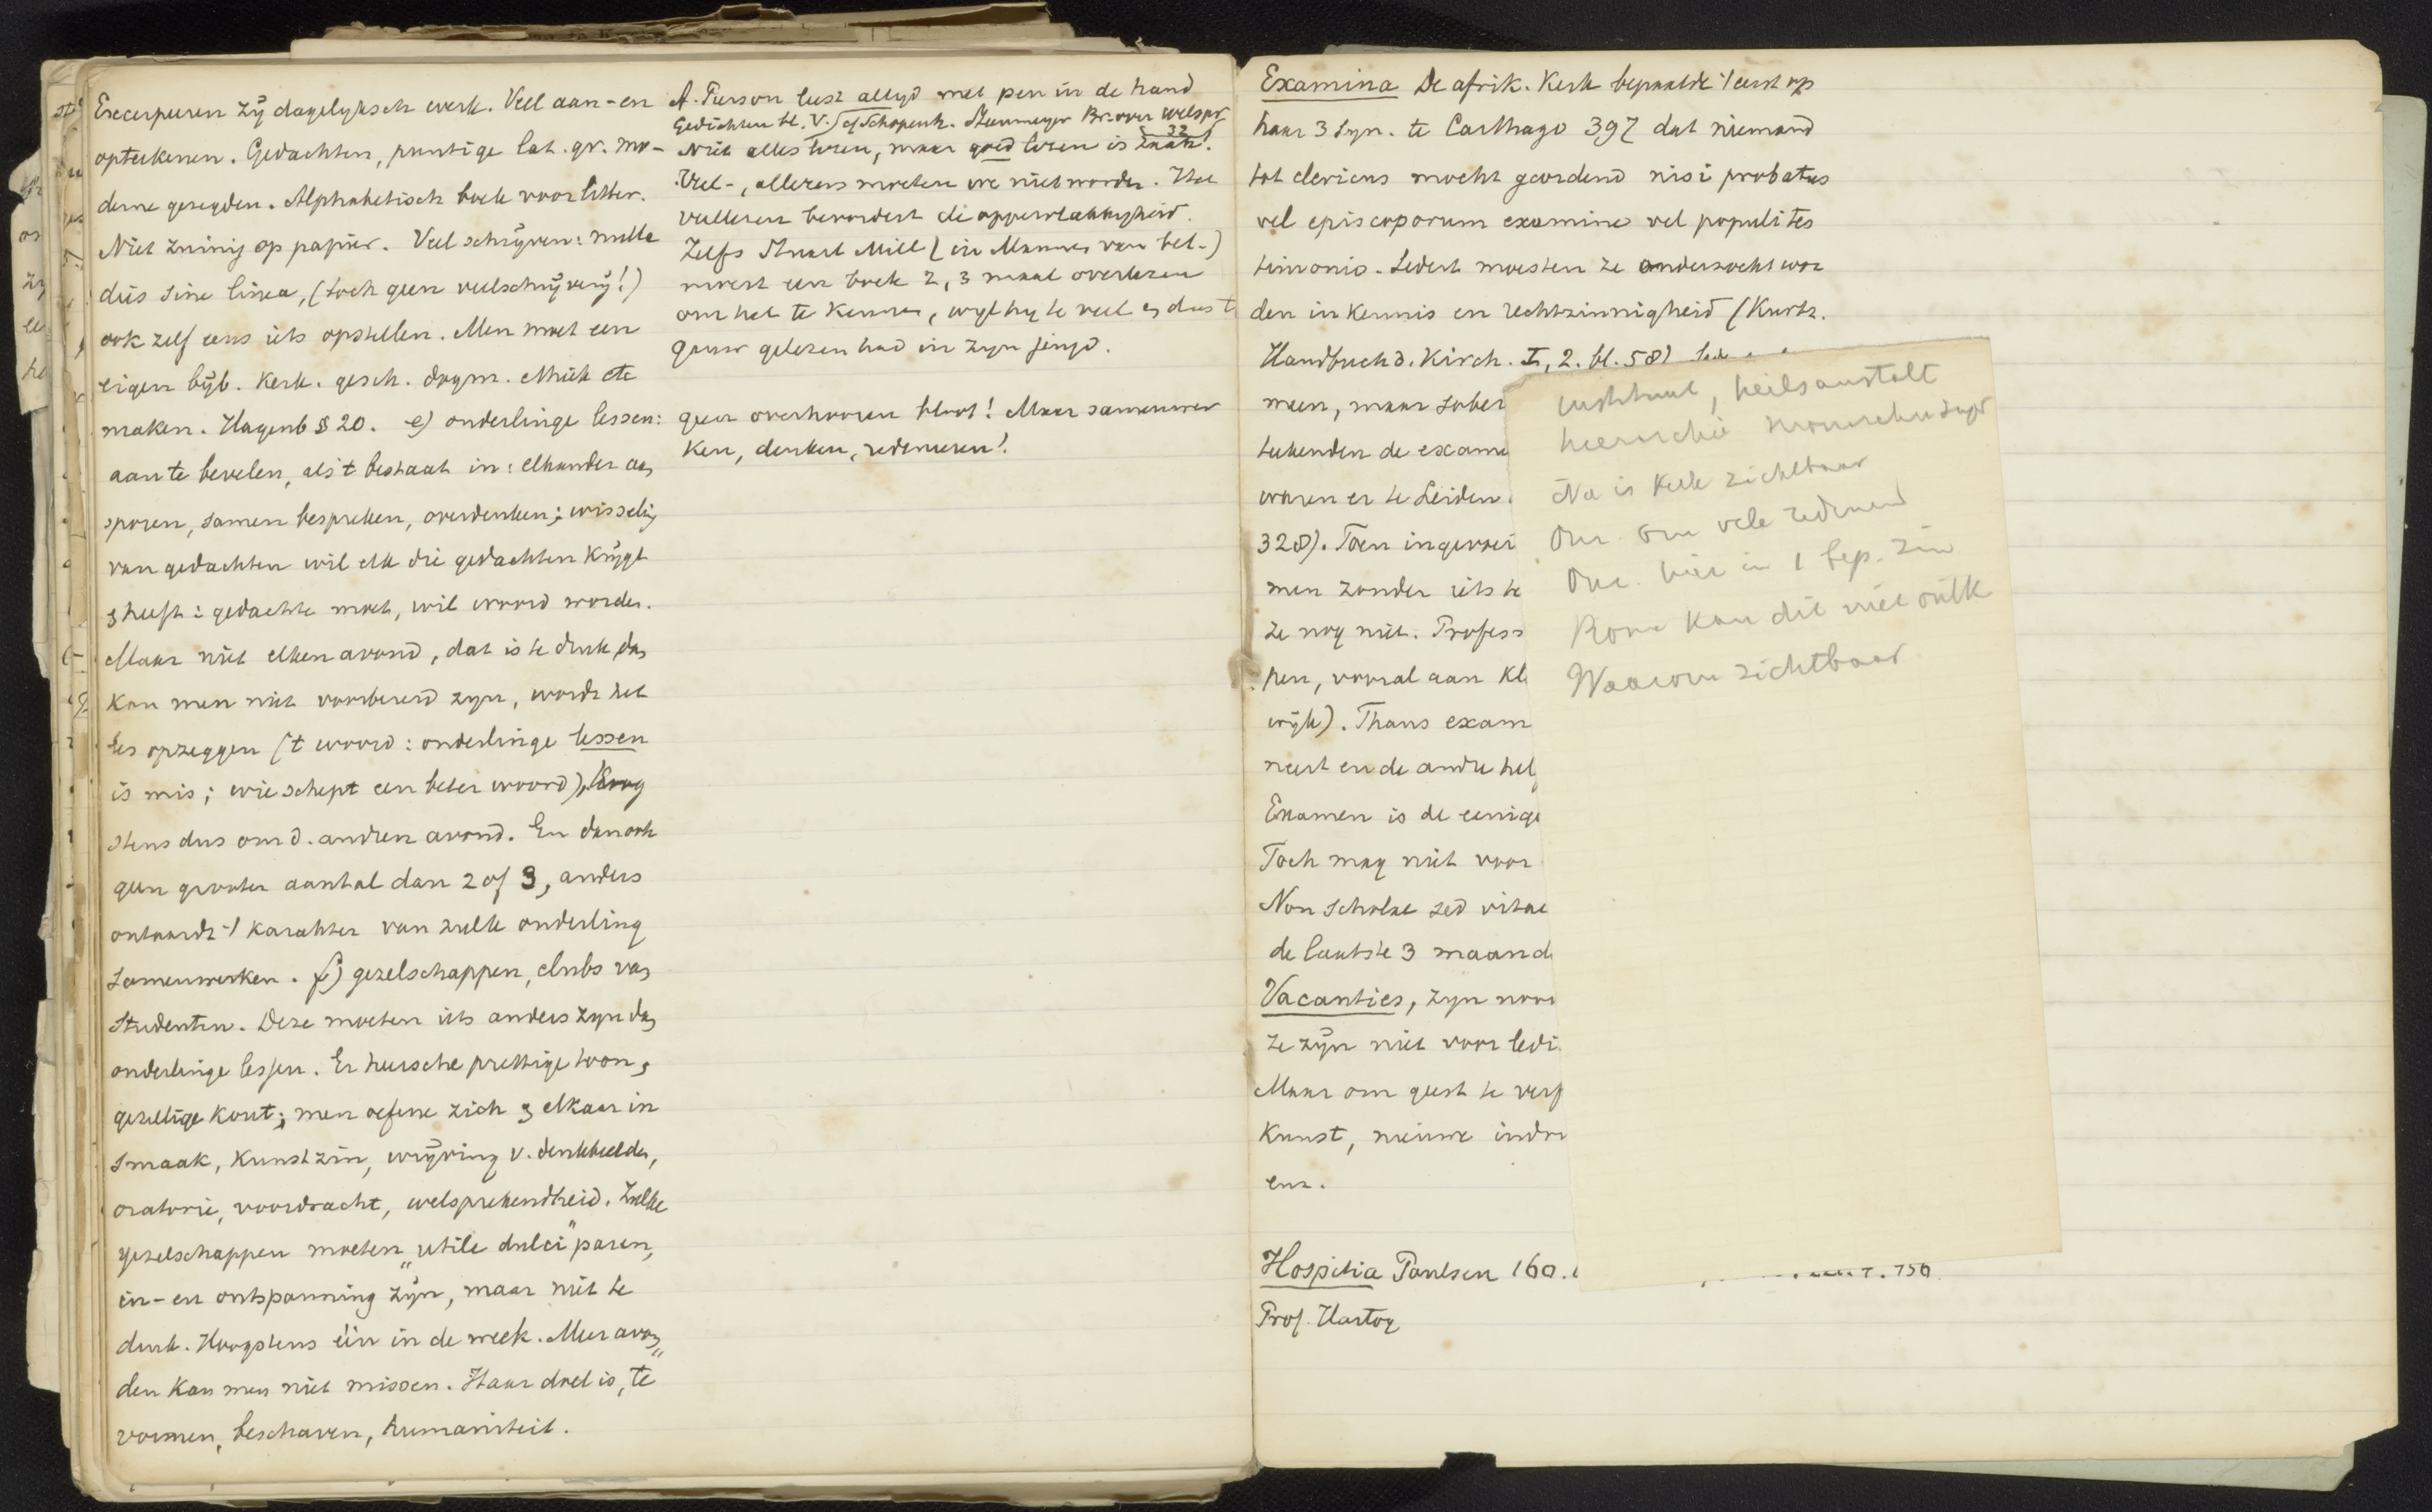 Excerpeeren zij dagelyksch werk. Veel aan- en
opteekenen. Gedachten, puntige lat. gr. mo-
derne gezegden. Alphabetisch boek voor litter.
Niet zuinig op papier. Veel schrijven: nulla
dies sine linea, (toch geen veelschrijverij!)
ook zelf eens iets opstellen. Men moet een
eigen bijb. Kerk. gesch. dogm. ethiek etc
maken. Hagenb § 20. e) onderlinge lessen:
aan te bevelen, als 't bestaat in: elkander aan
sporen, samen bespreken, overdenken; wisseling
van gedachten wil elk die gedachten krijgt
& heeft: gedachte moet, wil woord worden.
Maar niet elken avond, dat is te druk, dan
kan men niet voorbereid zyn, wordt het
les opzeggen ('t woord: onderlinge lessen
is mis; wie schept een beter woord), Hoog
stens dus om d. andren avond. En dan ook
geen grooter aantal dan 2 of 3, anders
ontaardt 't karakter van zulk onderling
samenwerken. f) gezelschappen, clubs van
Studenten. Deze moeten iets anders zyn dan
onderlinge lessen. Er heersche prettige toon,
gezellige kout; men oefene zich & elkaar in
smaak, kunstzin, wrijving v. denkbeelden,
oratorie, voordracht, welsprekendheid. Zulke
gezelschappen moeten „utile dulci" paren,
in- en ontspanning zijn, maar niet te
druk. Hoogstens één in de week. Meer avon„
den kan men niet missen. Haar doel is, te
vormen, beschaven, humaniteit.
A. Pierson leest altyd met pen in de hand
Gedichten bl. V. cf Schopenh. Steenmeyer Br. over welspr
32
Niet alles lezen, maar goed lezen is zaak!
Veel-, allezers moeten we niet worden. Het
veellezen bevordert de oppervlakkigheid.
Zelfs Stuart Mill (in Mannen van bet.)
moest een boek 2, 3 maal overlezen
om het te kennen, wyl hy te veel & dus t
geen gelezen had in zyn jeugd.
geen overhooren bloot! Maar samenwer
ken, denken, redeneeren!
Examina De afrik. Kerk bepaalde 't eerst op
haar 3 Syn. te Carthago 397 dat niemand
tot clericus mocht geordend nisi probatus
vel episcoporum examine vel populi tes
timonio. Sedert moesten ze onderzocht wor
den in kennis en rechtzinnigheid (Kurtz.
Handbuch d. Kirch. I, 2. bl. 58)
men, maar sober
teekenden de exam
waren er te Leiden
328). Toen ingevoer
men zonder iets te
ze nog niet. Profess
pen, vooral aan Kl
wijk). Thans exam
neert en de andre hel
Examen is de eenige
Toch mag niet voor
Non scholae sed vitae
de laatste 3 maand
Vacanties, zyn noo
ze zijn niet voor ledi
Maar om geest te verf
Kunst, nieuwe indru
enz.
Hospitia Paulsen 160.
Prof. Hartog
instituut, heilsanstalt
hierarchie
No is Kerk zichtbaar
Onz. om vele redenen
Onz. hier in 1 bep. zin
Rome kan dit niet
Waarom zichtbaar